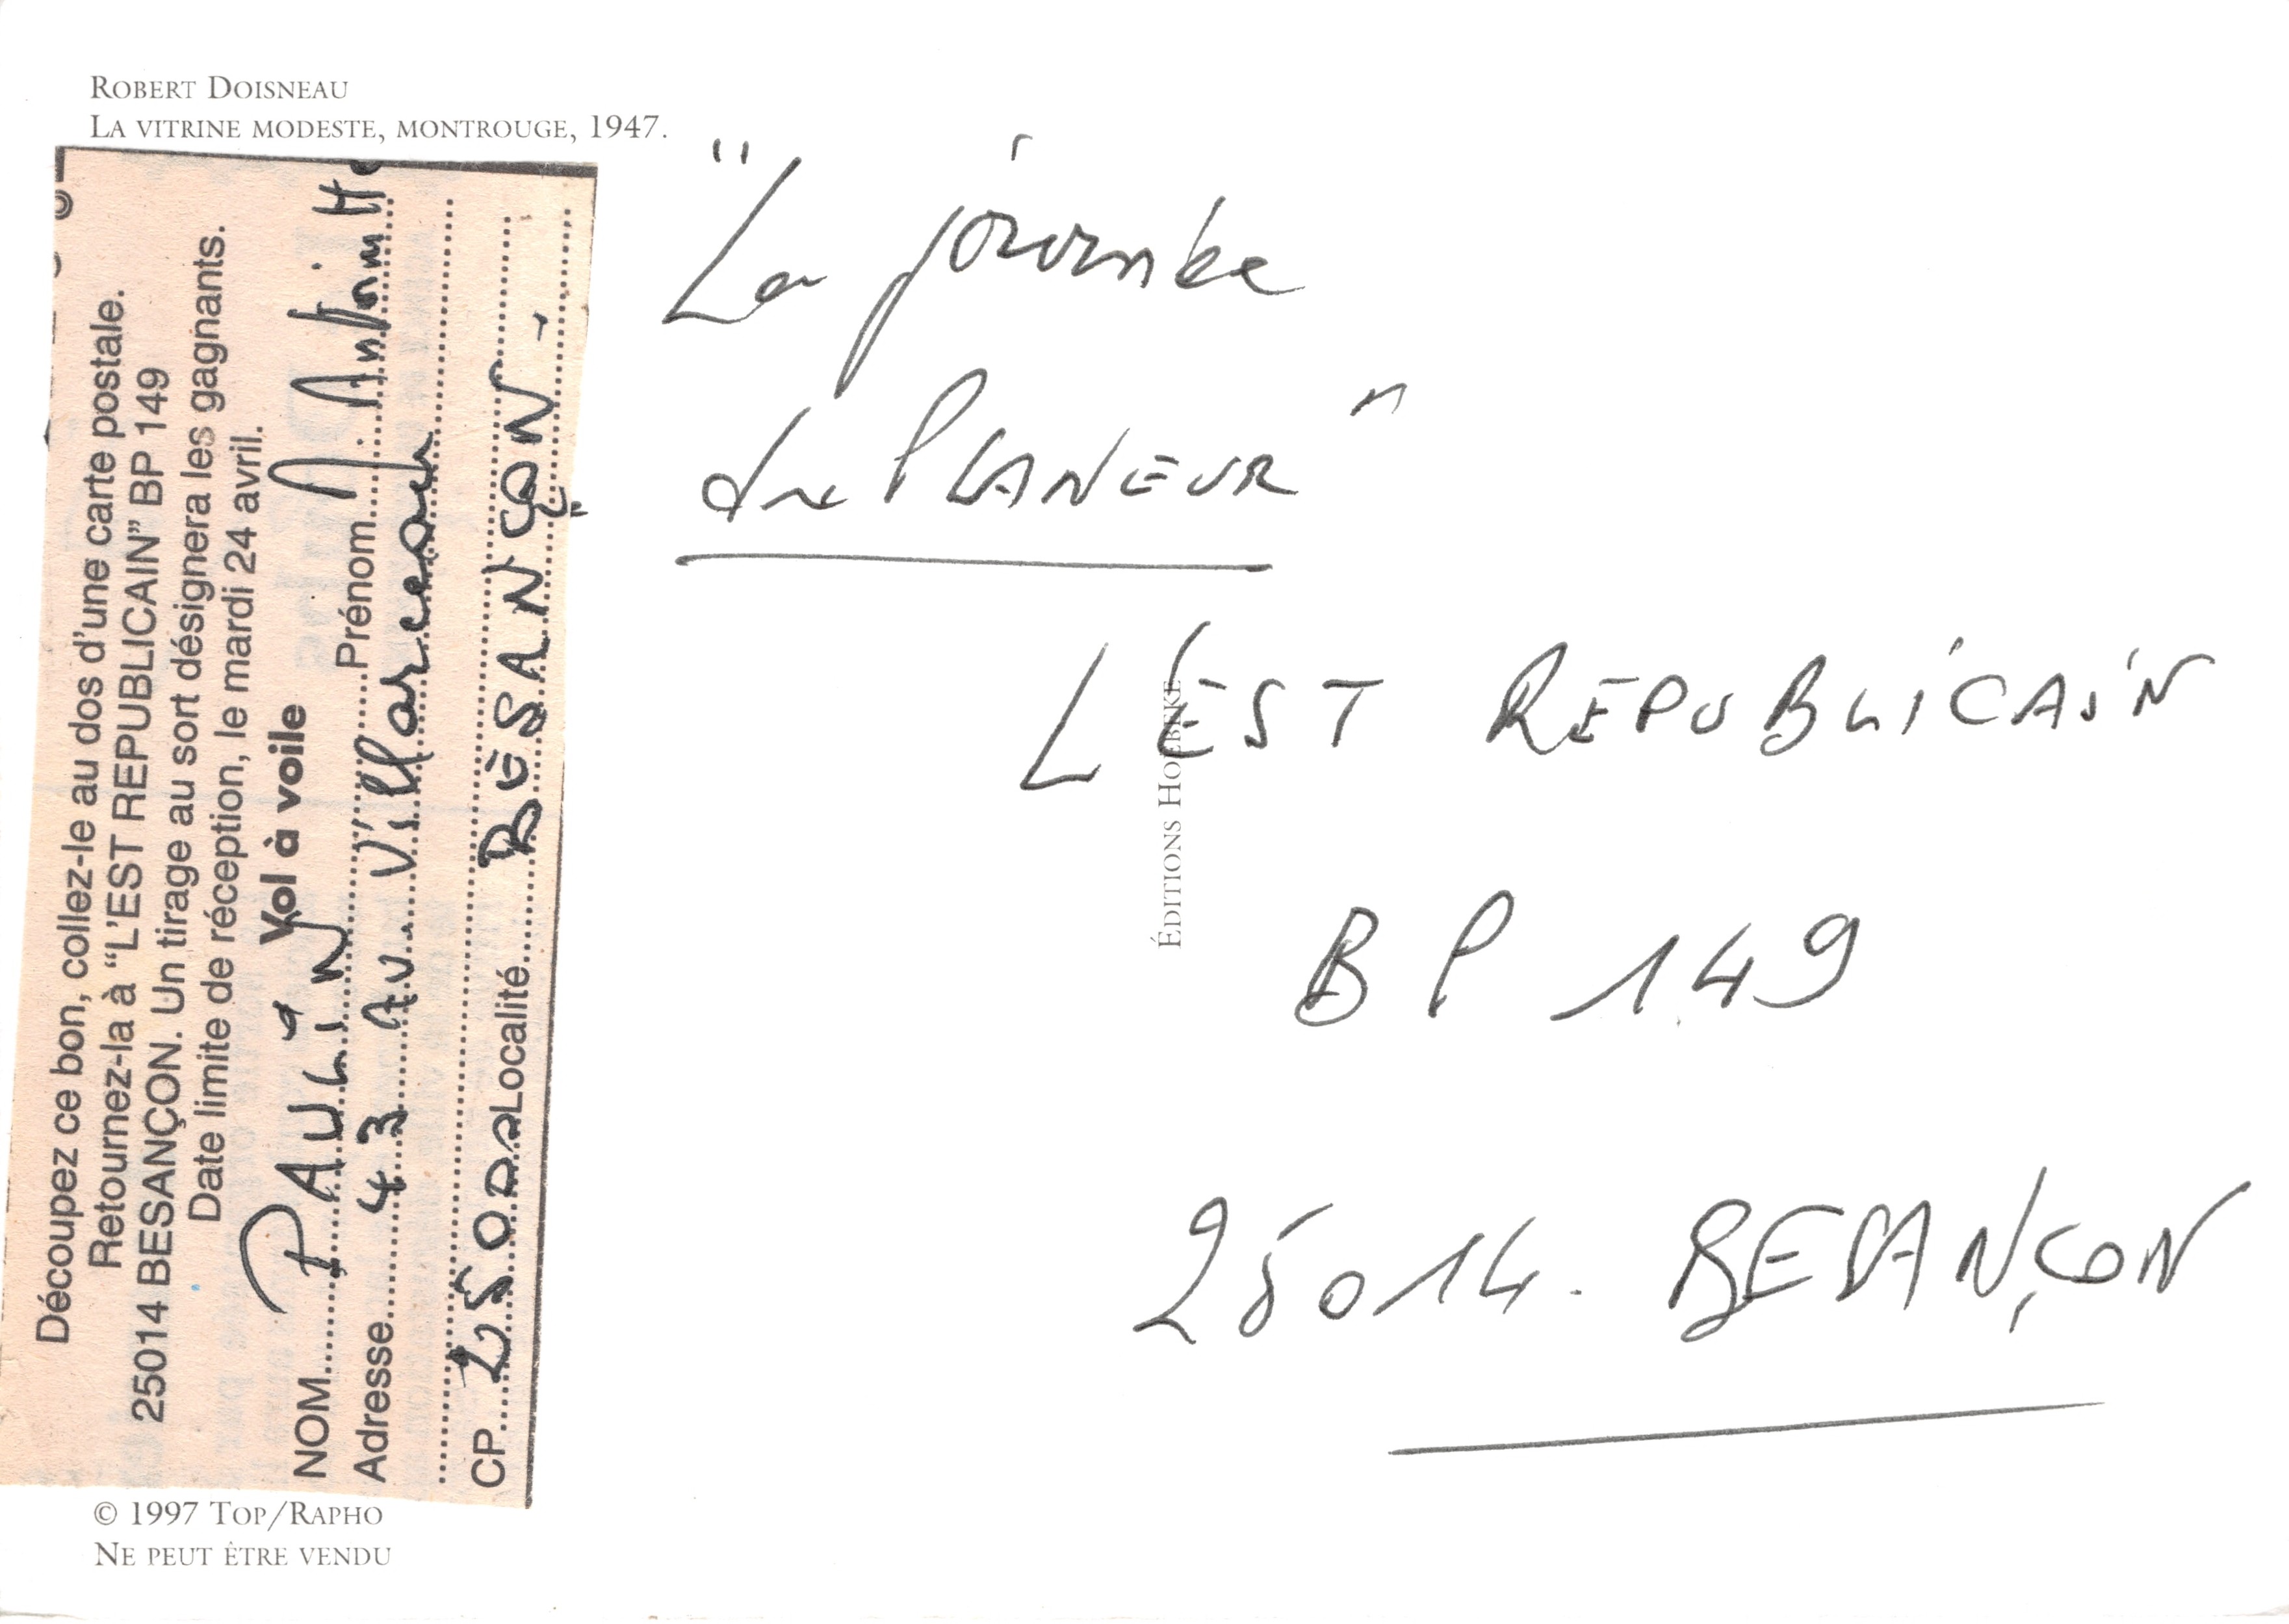 ROBERT DOISNEAU
LA VITRINE MODESTE, MONTROUGE, 1947.
Découpez ce bon, collez-le au dos d'une carte postale.
Retournez-la à "L'EST REPUBLICAIN" BP 149
25014 BESANÇON. Un tirage au sort désignera les gagnants.
Date limite de réception, le mardi 24 avril.
Vol à voile
NOM PAULIN Prénom Antoinette
Adresse 43 Av. Villarceau
CP 25000 Localité BESANÇON -
"La journée
du PLANEUR"
L'EST REPUBLICAIN
BP 149
25014. BESANÇON
ÉDITIONS HOËBEKE
© 1997 TOP/RAPHO
NE PEUT ÊTRE VENDU